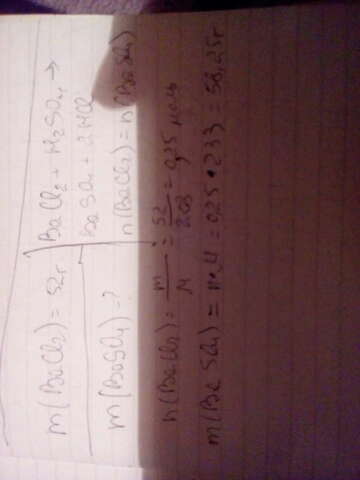 m(BaCl2) = 52г
m(BaSO4) = ?
BaCl2 + H2SO4 →
BaSO4 + 2HCl
n(BaCl2) = n(BaSO4)
n(BaCl2) = m/M = 52/208 = 0,25 моль
m(BaSO4) = n•M = 0,25•233 = 58,25г